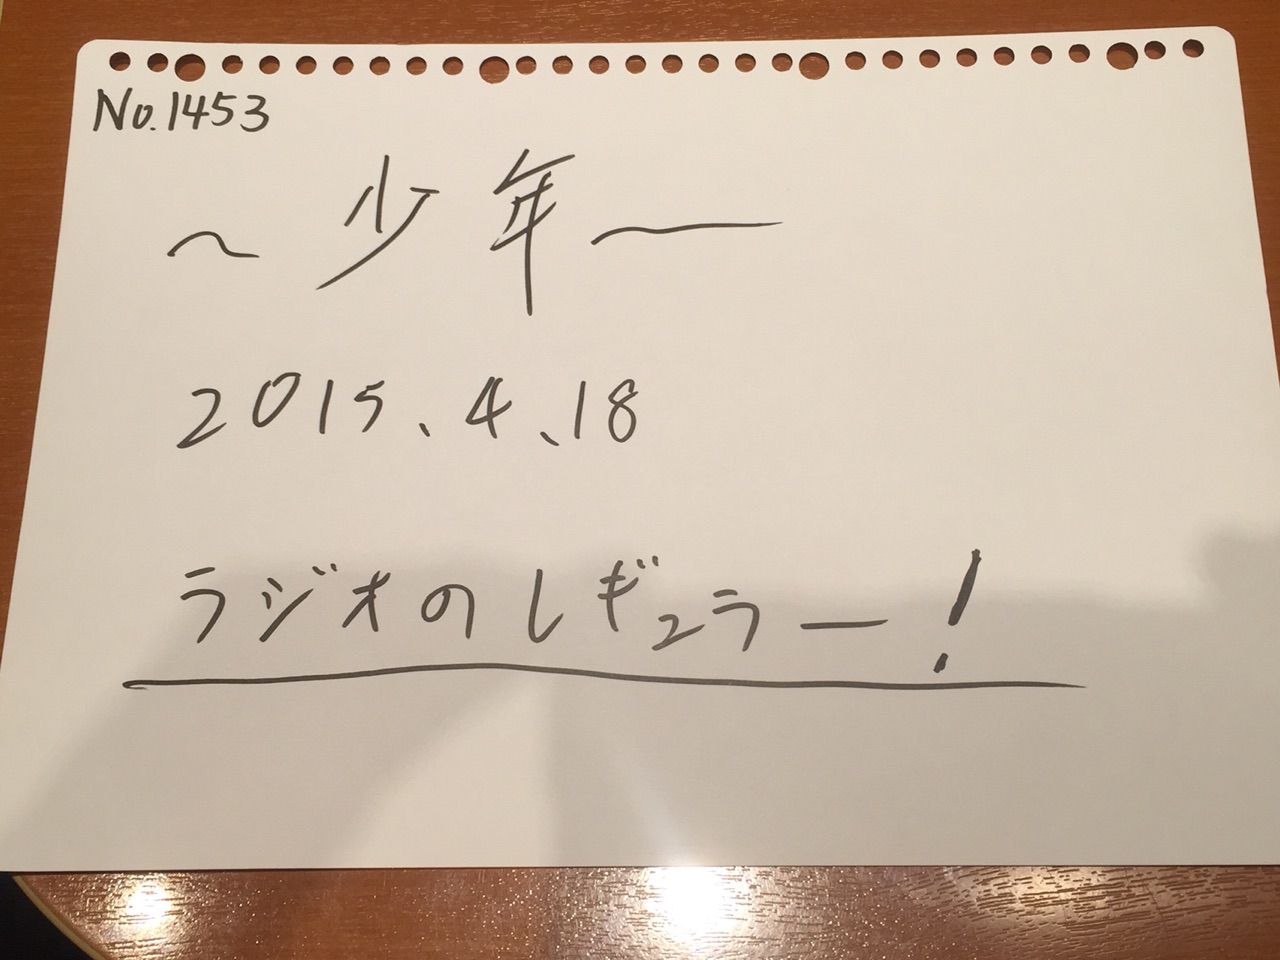 No.1453
〜少年〜
2015、4、18
ラジオのレギュラー!